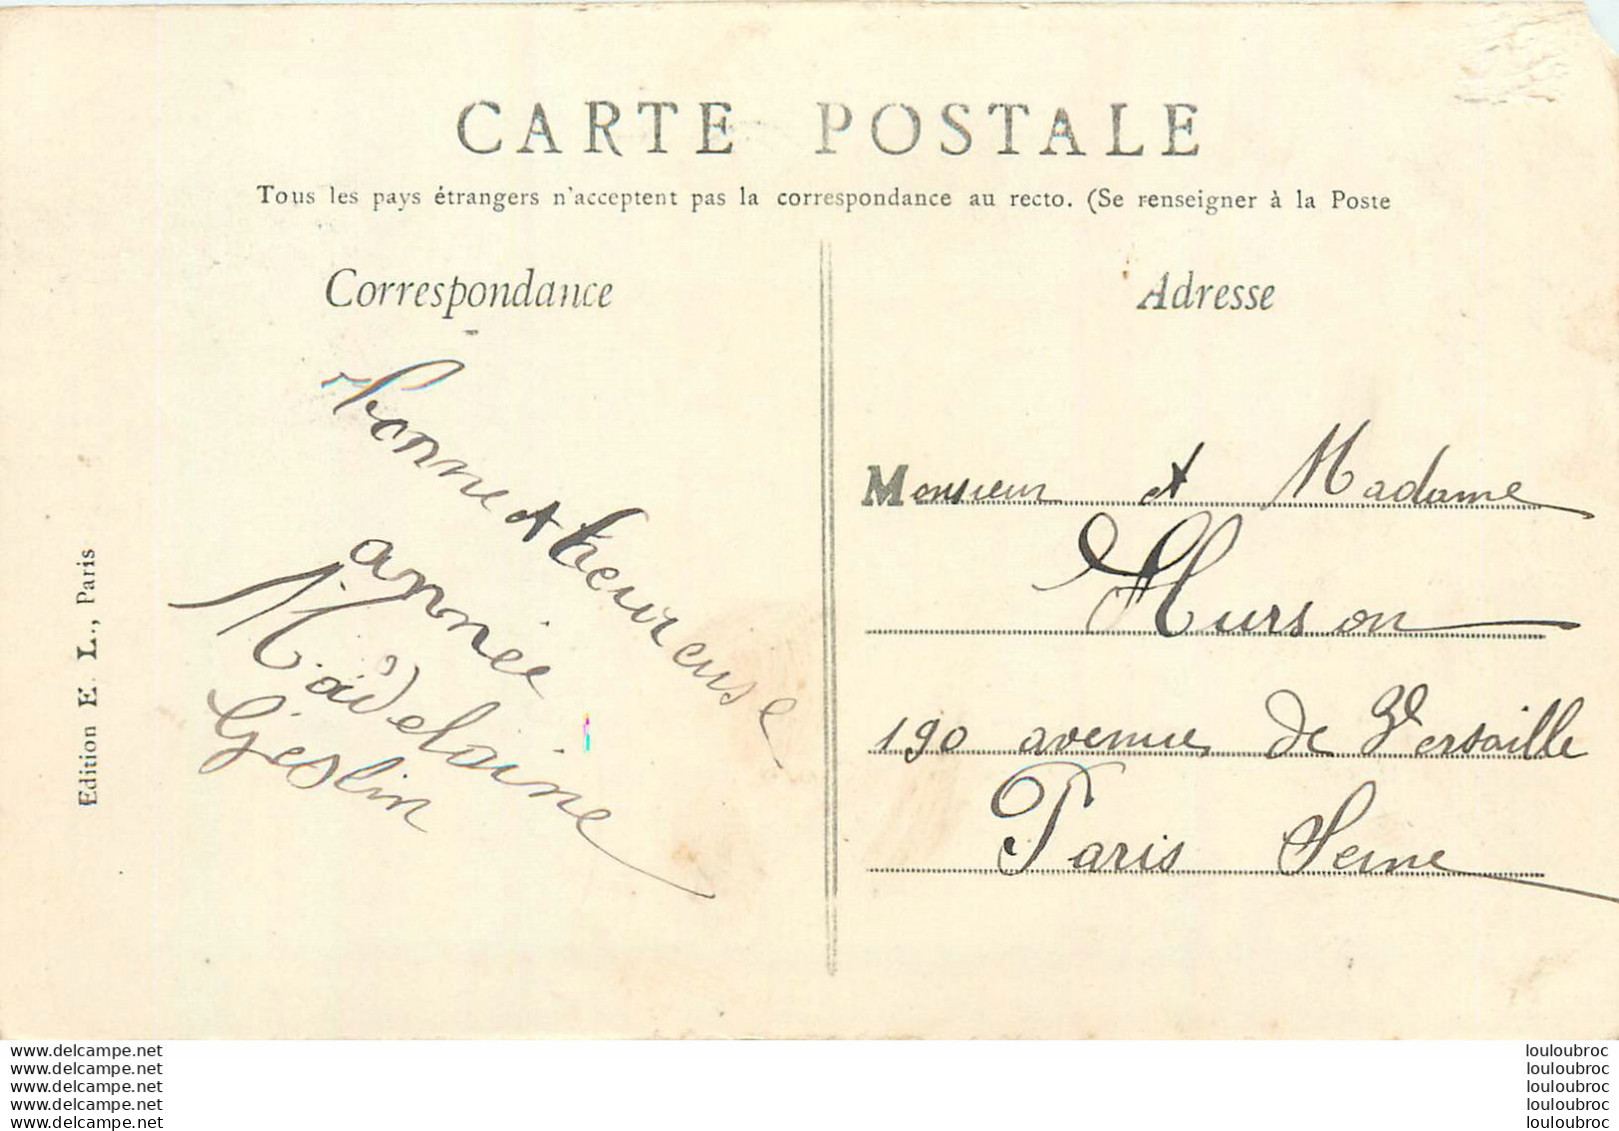 CARTE POSTALE
Tous les pays étrangers n'acceptent pas la correspondance au recto. (Se renseigner à la Poste
Correspondance
bonne et heureuse
année
Madelaine
Geslin
Edition E. L., Paris
Adresse
Monsieur et Madame
Hurson
190 avenue de Versaille
Paris Seine
www.delcampe.net
www.delcampe.net
www.delcampe.net
www.delcampe.net
www.delcampe.net
louloubroc
louloubroc
louloubroc
louloubroc
louloubroc